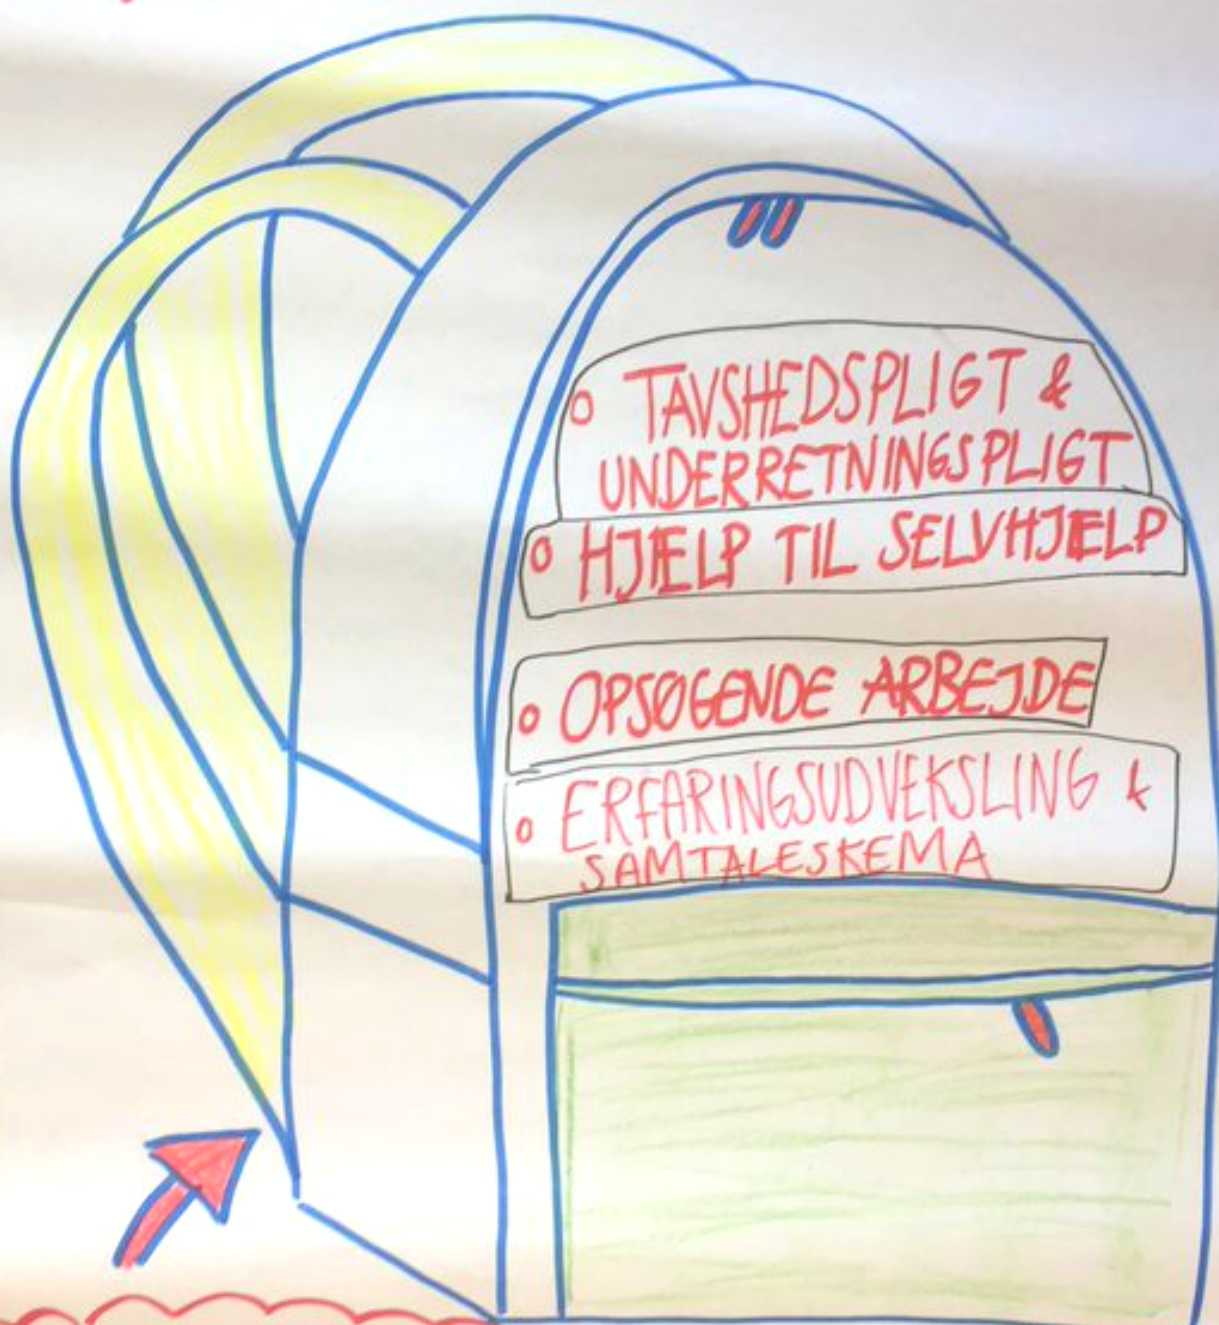 o TAVSHEDSPLIGT &
UNDERRETNINGSPLIGT
o HJÆLP TIL SELVHJÆLP
o OPSØGENDE ARBEJDE
o ERFARINGSUDVEKSLING &
SAMTALESKEMA